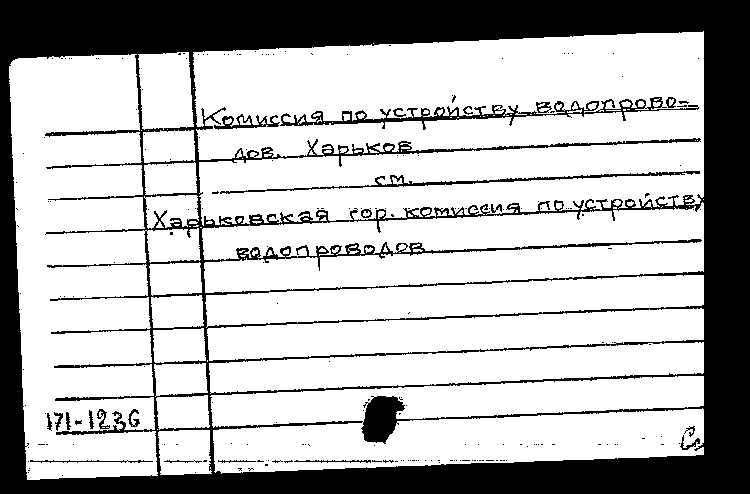 Комиссия по устройству водопрово=
дов. Харьков
см.
Харьковская гор. комиссия по устройству
водопроводов
171-1236